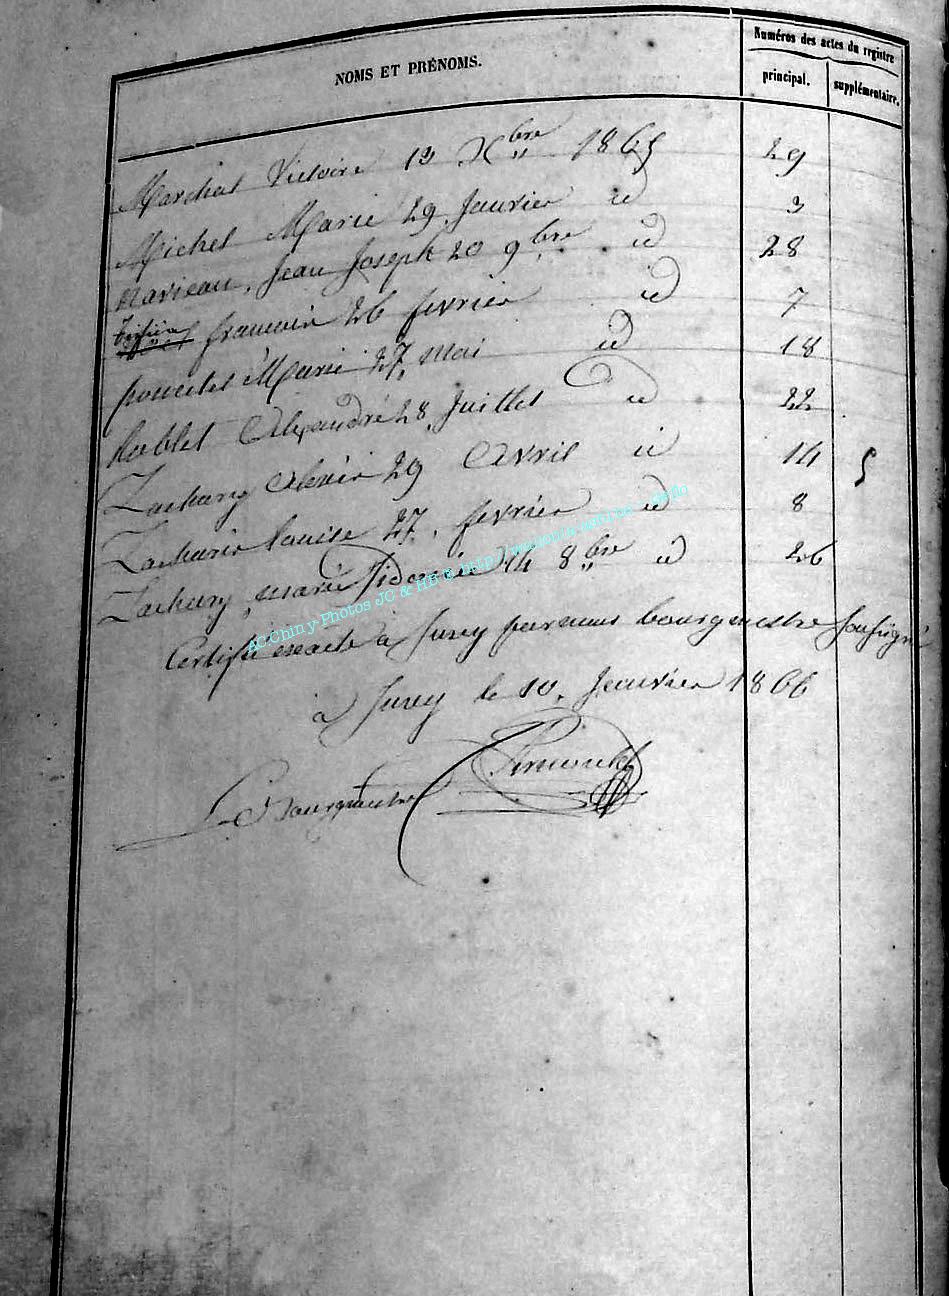 Numéros des actes du registre
NOMS ET PRÉNOMS.
principal. supplémentaire.
Marchal Victoire 13 Xbre 1865 29
Michel Marie 29 Janvier id 3
Marieau, Jean Joseph 20 9bre id 28
francois 26 fevrier id 7
Marie 27 Mai id 18
Roblet Alexandre 28 Juillet id 22
Zachary Alexis 29 Avril id 14
Zacharie louise 27 fevrier id 8
Zachary, marie Sidonie 14 8bre id 26
Certifié exacte à Suxy par nous bourgmestre soussigné
a Suxy le 10 Janvier 1866
Le Bourgmestre
AC Chiny Photos JC & HB